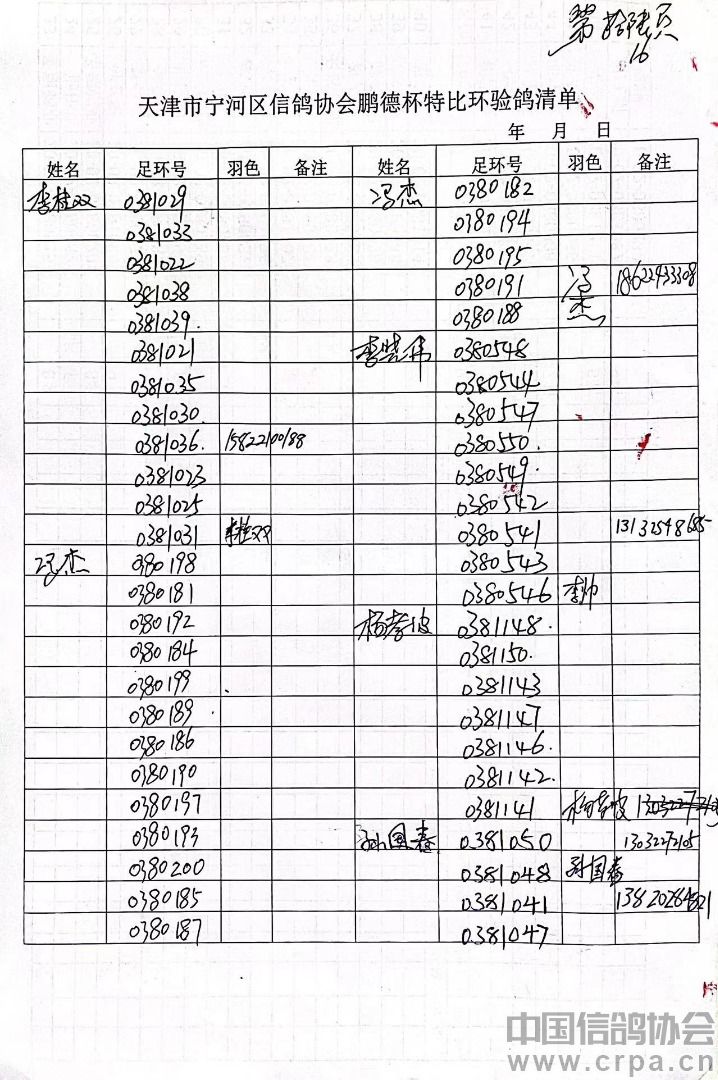 第拾陆页
16
天津市宁河区信鸽协会鹏德杯特比环验鸽清单
年 月 日
姓名 足环号 羽色 备注 姓名 足环号 羽色 备注
李桂双 0381029 冯杰 0380182
0381033 0380194
0381022 0380195
0381038 0380191 冯杰 18622933308
0381039. 0380188
0381021 李晓伟 0380548
0381035 0380544
0381030 0380547
0381036. 15822100188 0380550.
0381023 0380549.
0381025 0380542
0381031 李桂双 0380541 13132548685
冯杰 0380198 0380543
0380181 0380546 李帅
0380192 杨孝波 0381148.
0380184 0381150.
0380199 0381143
0380189. 0381147
0380186 0381146.
0380190 0381142.
0380197 0381141 杨孝波
0380193 孙国春 0381050 13032272105
0380200 0381048 孙国春
0380185 0381041
0380187 0381047
中国信鸽协会
www.crpa.cn